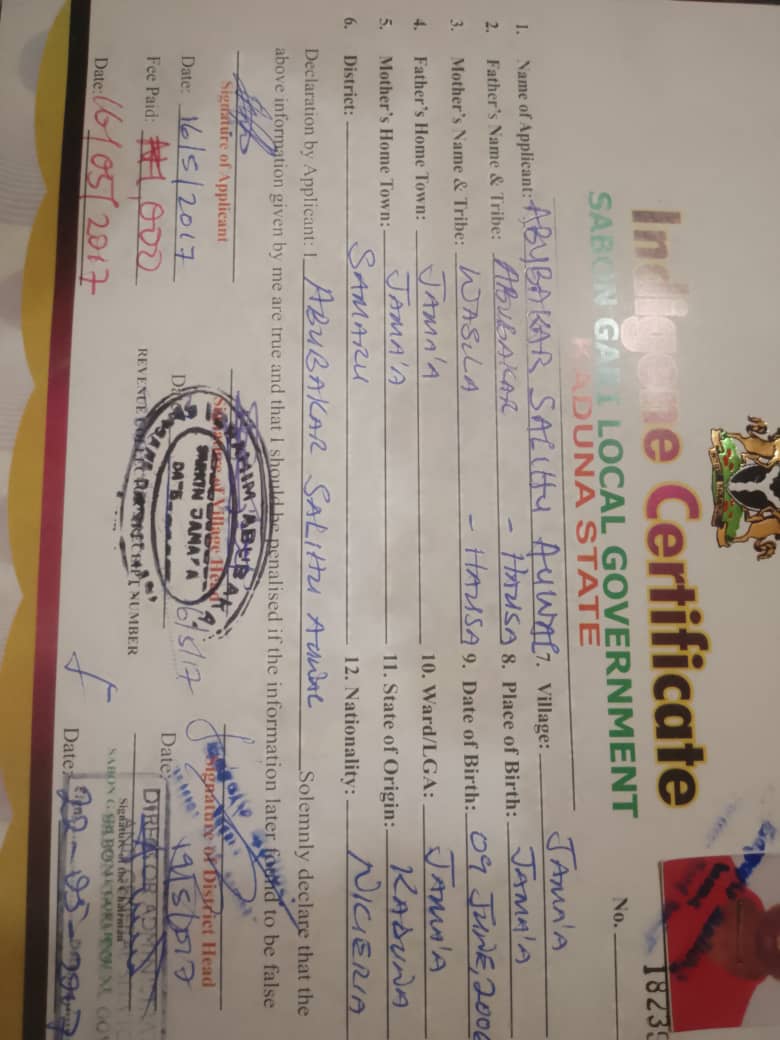 Indigene Certificate
SABON GARI LOCAL GOVERNMENT
KADUNA STATE
No. 18239
1. Name of Applicant: ABUBAKAR SALIHU AUWAL 7. Village: JAMA'A
2. Father's Name & Tribe: ABUBAKAR - HAUSA 8. Place of Birth: JAMA'A
3. Mother's Name & Tribe: WASILA - HAUSA 9. Date of Birth: 09 JUNE, 2006
4. Father's Home Town: JAMA'A 10. Ward/LGA: JAMA'A
5. Mother's Home Town: JAMA'A 11. State of Origin: KADUNA
6. District: SAMARU 12. Nationality: NIGERIA
Declaration by Applicant: I ABUBAKAR SALIHU AUWAL Solemnly declare that the
above information given by me are true and that I should be penalised if the information later found to be false
Signature of Applicant Signature of Village Head Signature of District Head
Date: 16/5/2017 16/5/17 Date: 19/5/2017
SARKIN JAMA'A
DATE
Fee Paid: ₦1,000 NUMBER
DIRECTOR ADMIN
Signature of the Chairman
Date: 16/05/2017 Date: 22-05-2017